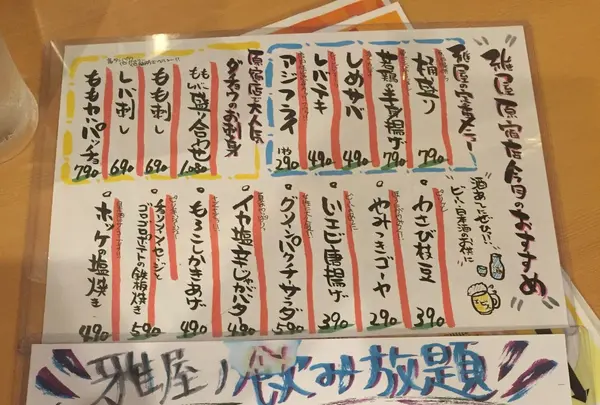 雅屋 原宿店 今日のおすすめ
酒あてにぜひ!!
ビール・日本酒のお供に
雅屋の定番メニュー
桶盛り 790
若鶏の半身揚げ 790
しめサバ 490
レバテキ 490
アジフライ 290
原宿店で大人気
ダチョウのお刺身
ももレバー盛り合わせ 1080
もも刺し 690
レバ刺し 690
ももカルパッチョ 790
わさび枝豆 390
やみつきゴーヤ 290
川エビ唐揚げ 390
グリーンパクチーサラダ 590
イカ塩辛じゃがバタ 490
もろこしかきあげ 490
チョリソーソーセージと
ゴロゴロポテトの鉄板焼き 590
ホッケの塩焼き 490
雅屋ノ飲み放題